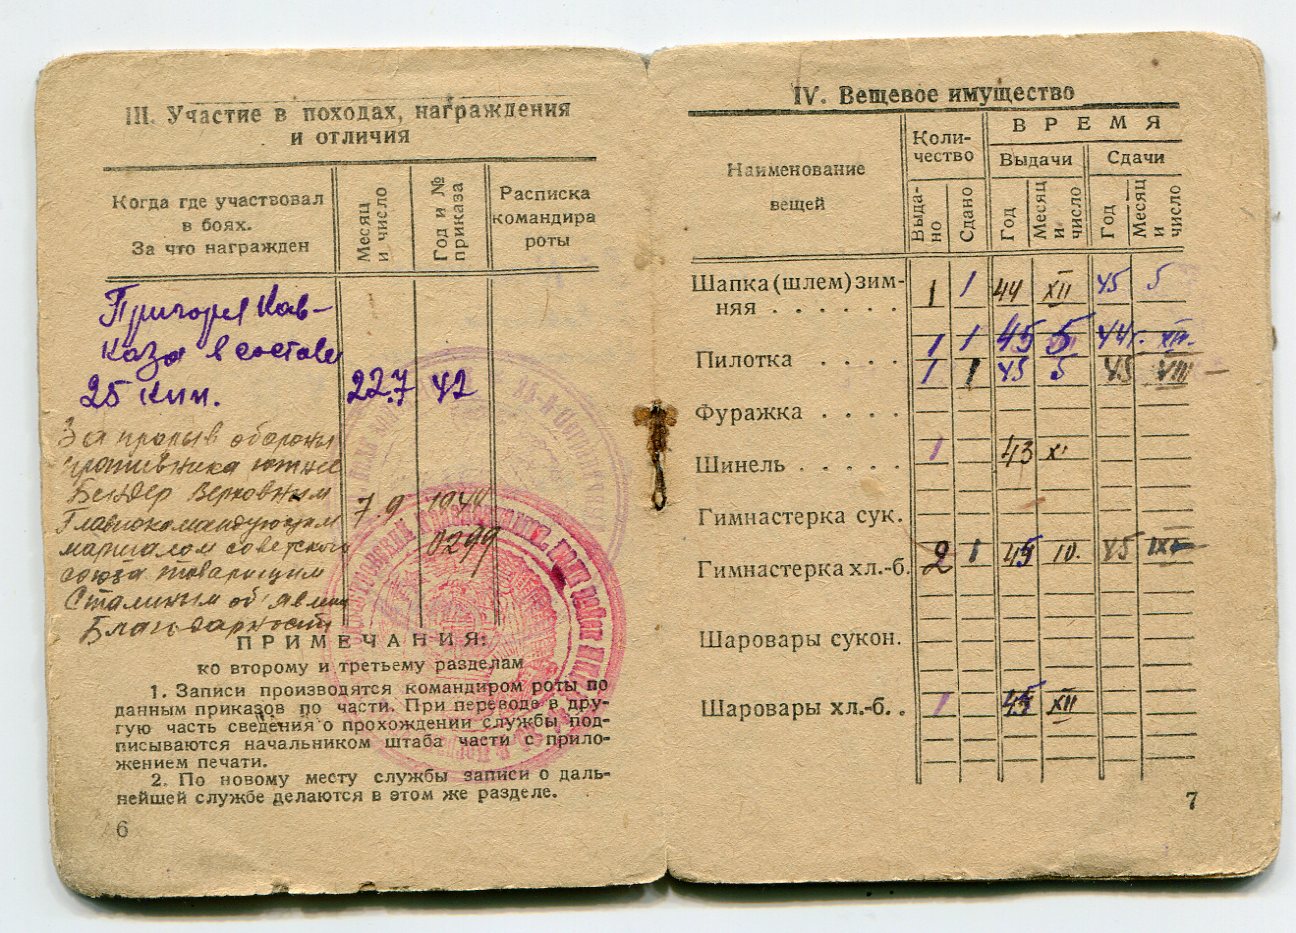 III. Участие в походах, награждения
и отличия
Когда где участвовал
в боях.
За что награжден
Месяц
и число
Год и №
приказа
Расписка
командира
роты
Пригоря Кав-
каза в составе
25 кпп. 22.7 42
За прорыв обороны
противника южнее
Бендер Верховным
Главнокомандующим 7 9 1944
маршалом советского 0299
союза товарищем
Сталиным об'явлена
Благодарность
ПРИМЕЧАНИЯ:
ко второму и третьему разделам
1. Записи производятся командиром роты по
данным приказов по части. При переводе в дру-
гую часть сведения о прохождении службы под-
писываются начальником штаба части с прило-
жением печати.
2. По новому месту службы записи о даль-
нейшей службе делаются в этом же разделе.
6
IV. Вещевое имущество
Наименование
вещей
Коли-
чество
ВРЕМЯ
Выдачи
Сдачи
Выда-
но
Сдано
Год
Месяц
и
число
Год
Месяц
и
число
Шапка (шлем) зим-
няя . . . . . . 1 1 44 XII 45 5
1 1 45 5 44г. XII.
Пилотка . . . . 1 1 45 5 45 VIII
Фуражка . . . .
Шинель . . . . . 1 43 XI
Гимнастерка сук.
Гимнастерка хл.-б. 2 1 45 IV. 45 IX
Шаровары сукон.
Шаровары хл.-б. . 1 45 XII
7